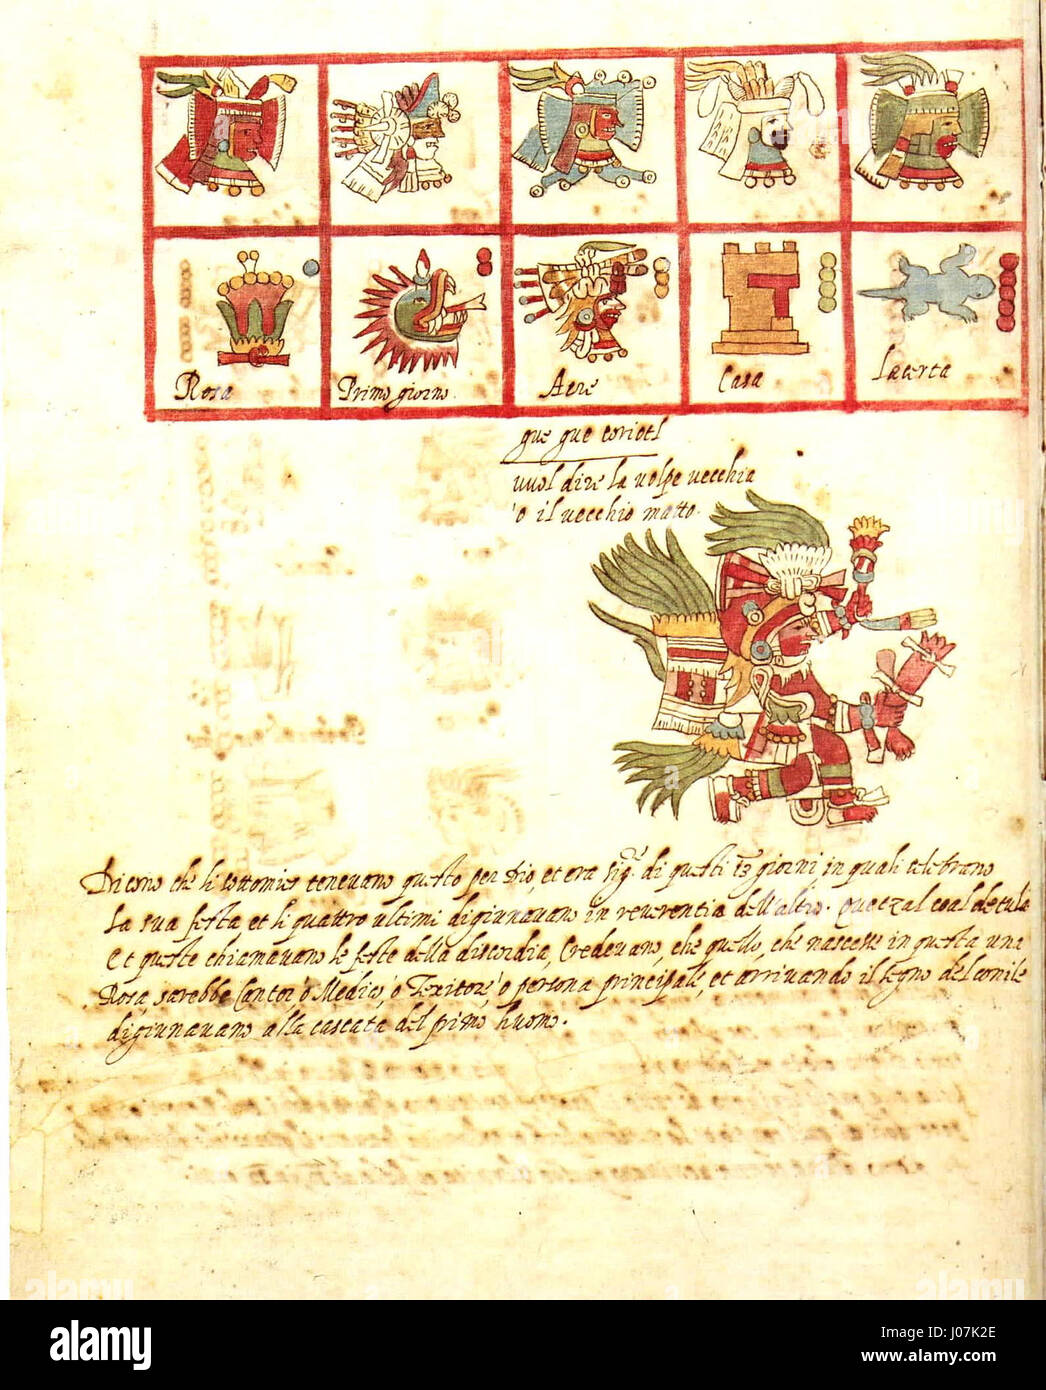 Rosa
Primo giorno.
Aere
Casa
Lacerta
gue gue coriotl
vuol dire la volpe vecchia
o il vecchio matto.
Dicono che li ottomies tenevano questo per Dio et era sig.re di questi 13 giorni in quali celebrano
La sua festa et li quattro ultimi digiunavano in reverentia dell'altro. quetzalcoal de tula
et queste chiamavano le feste della discordia, Credevano, che quello, che nascesse in questa una
Rosa, sarebbe Cantor, o Medico, o Texitore, o persona principale, et arrivando il segno del
digiunavano alla cascata del primo huomo.
alamy
alamy
alamy
Image ID: J07K2E
www.alamy.com